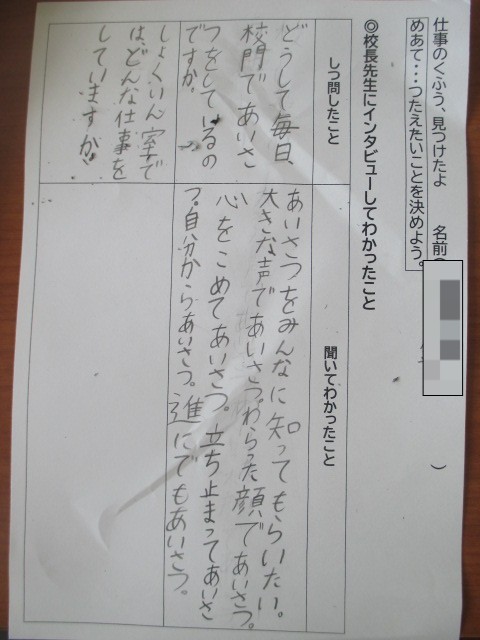 仕事のくふう、見つけたよ 名前( )
めあて…つたえたいことを決めよう。
◎校長先生にインタビューしてわかったこと
しつ問したこと
聞いてわかったこと
どうして毎日、
校門であいさ
つをしているの
ですか。
あいさつをみんなに知ってもらいたい。
大きな声であいさつ。わらった顔であいさつ。
心をこめてあいさつ。立ち止まってあいさ
つ。自分からあいさつ。進にでもあいさつ。
しょくいん室で
は、どんな仕事を
していますか。